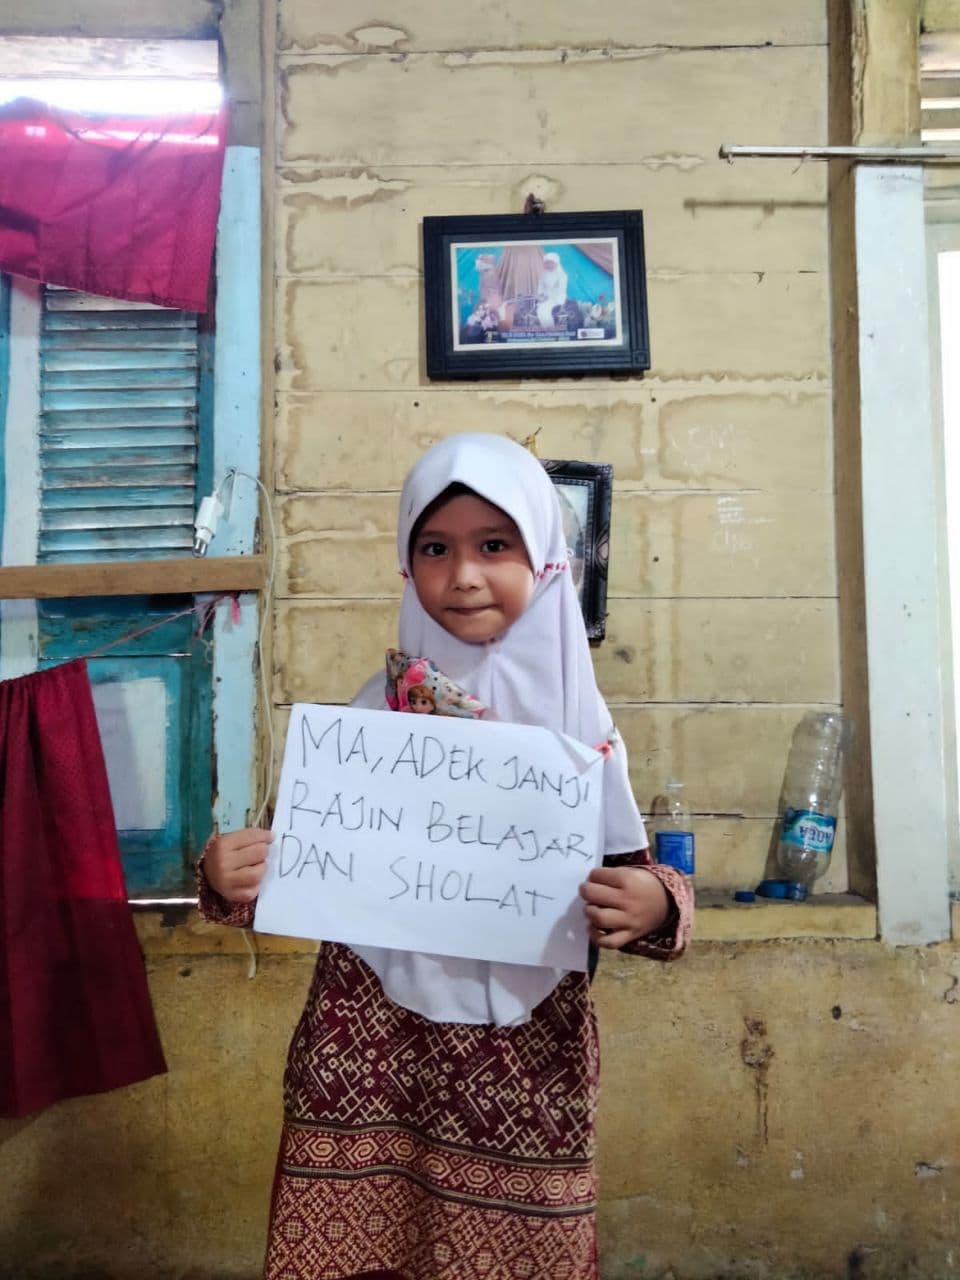 MA, ADEK JANJI
RAJIN BELAJAR,
DAN SHOLAT